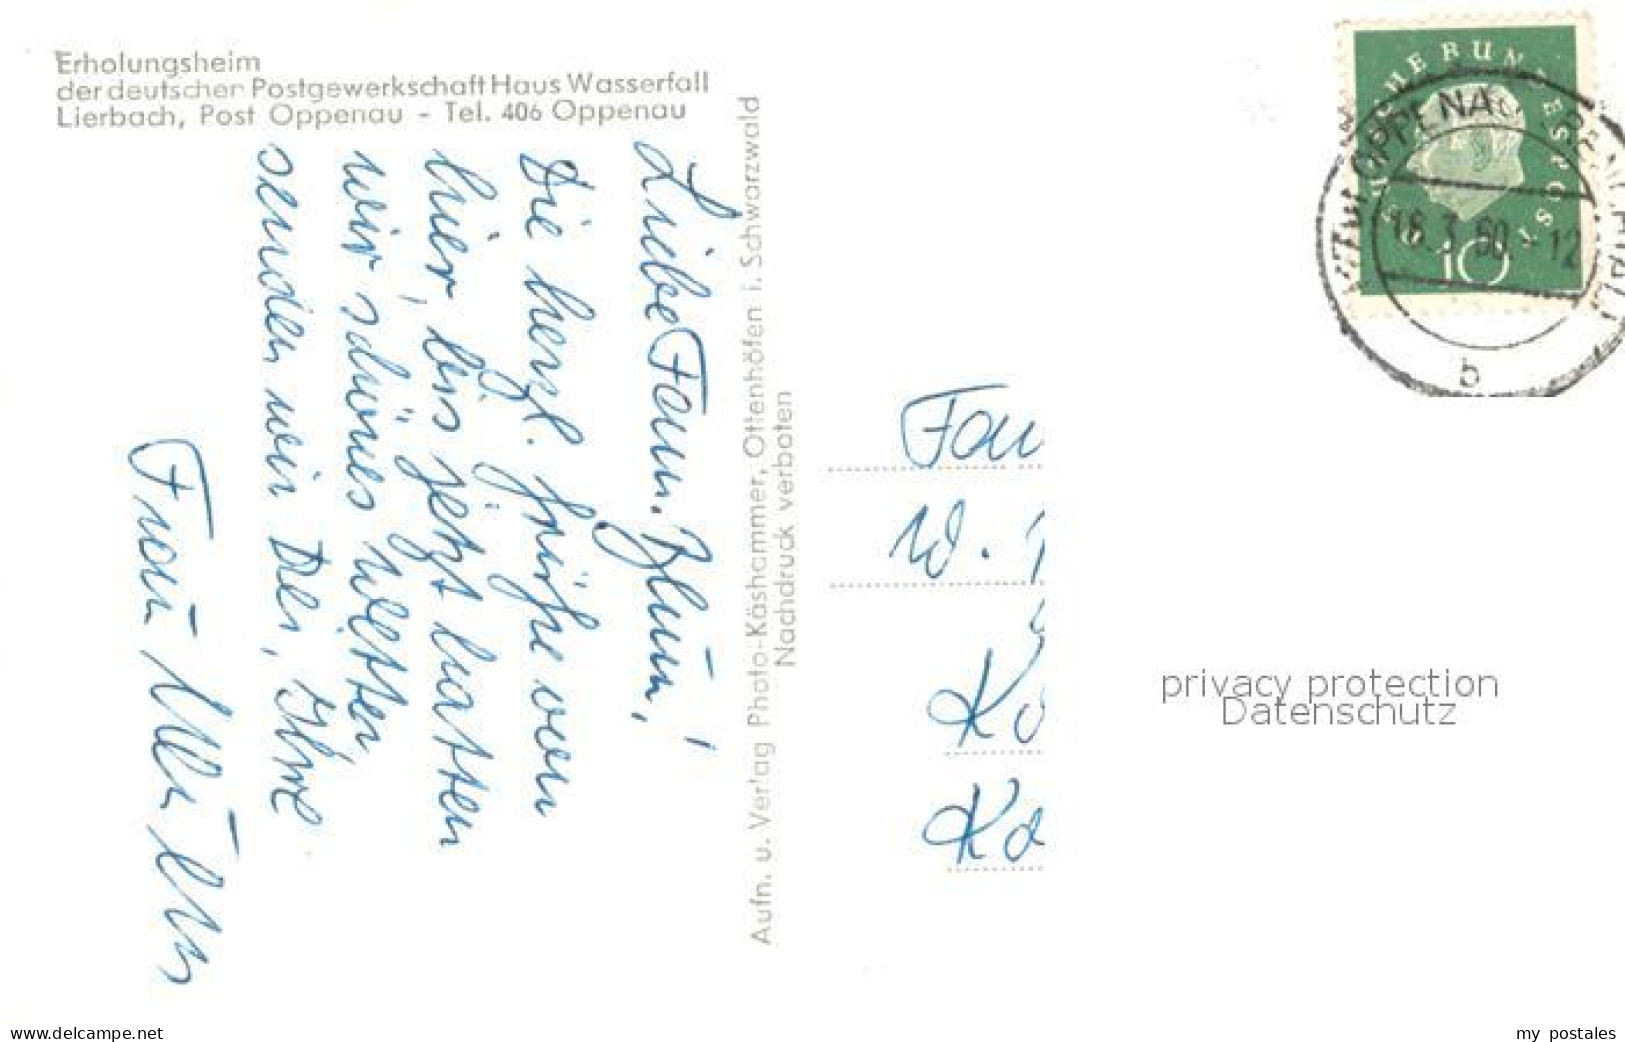 Erholungsheim
der deutschen Postgewerkschaft Haus Wasserfall
Lierbach, Post Oppenau - Tel. 406 Oppenau
Liebe Fam. Blum,!
Die herzl. Grüße von
hier, bis jetzt hatten
wir schönes Wetter,
senden wir Der, Ihre
Frau
Aufn. u. Verlag Photo-Käshammer, Ottenhöfen i. Schwarzwald
Nachdruck verboten
DEUTSCHE BUNDESPOST
10
OPPENAU
16.3.60-12
b
Fam
W.
Ka
privacy protection
Datenschutz
www.delcampe.net
my postales